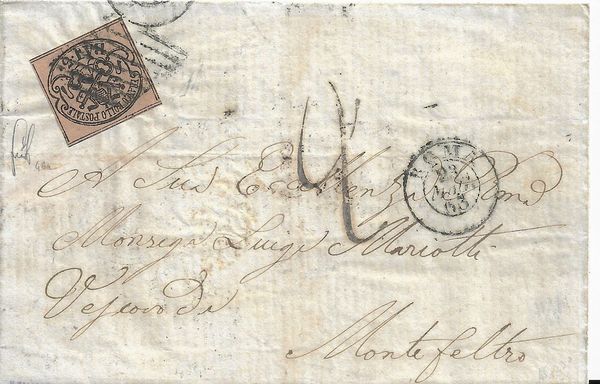 BAJ 5
FRANCO BOLLO POSTALE
ROMA
23
63
A Sua Eccellenza Rma
Monsigr Luigi Mariotti
Vescovo di
Montefeltro